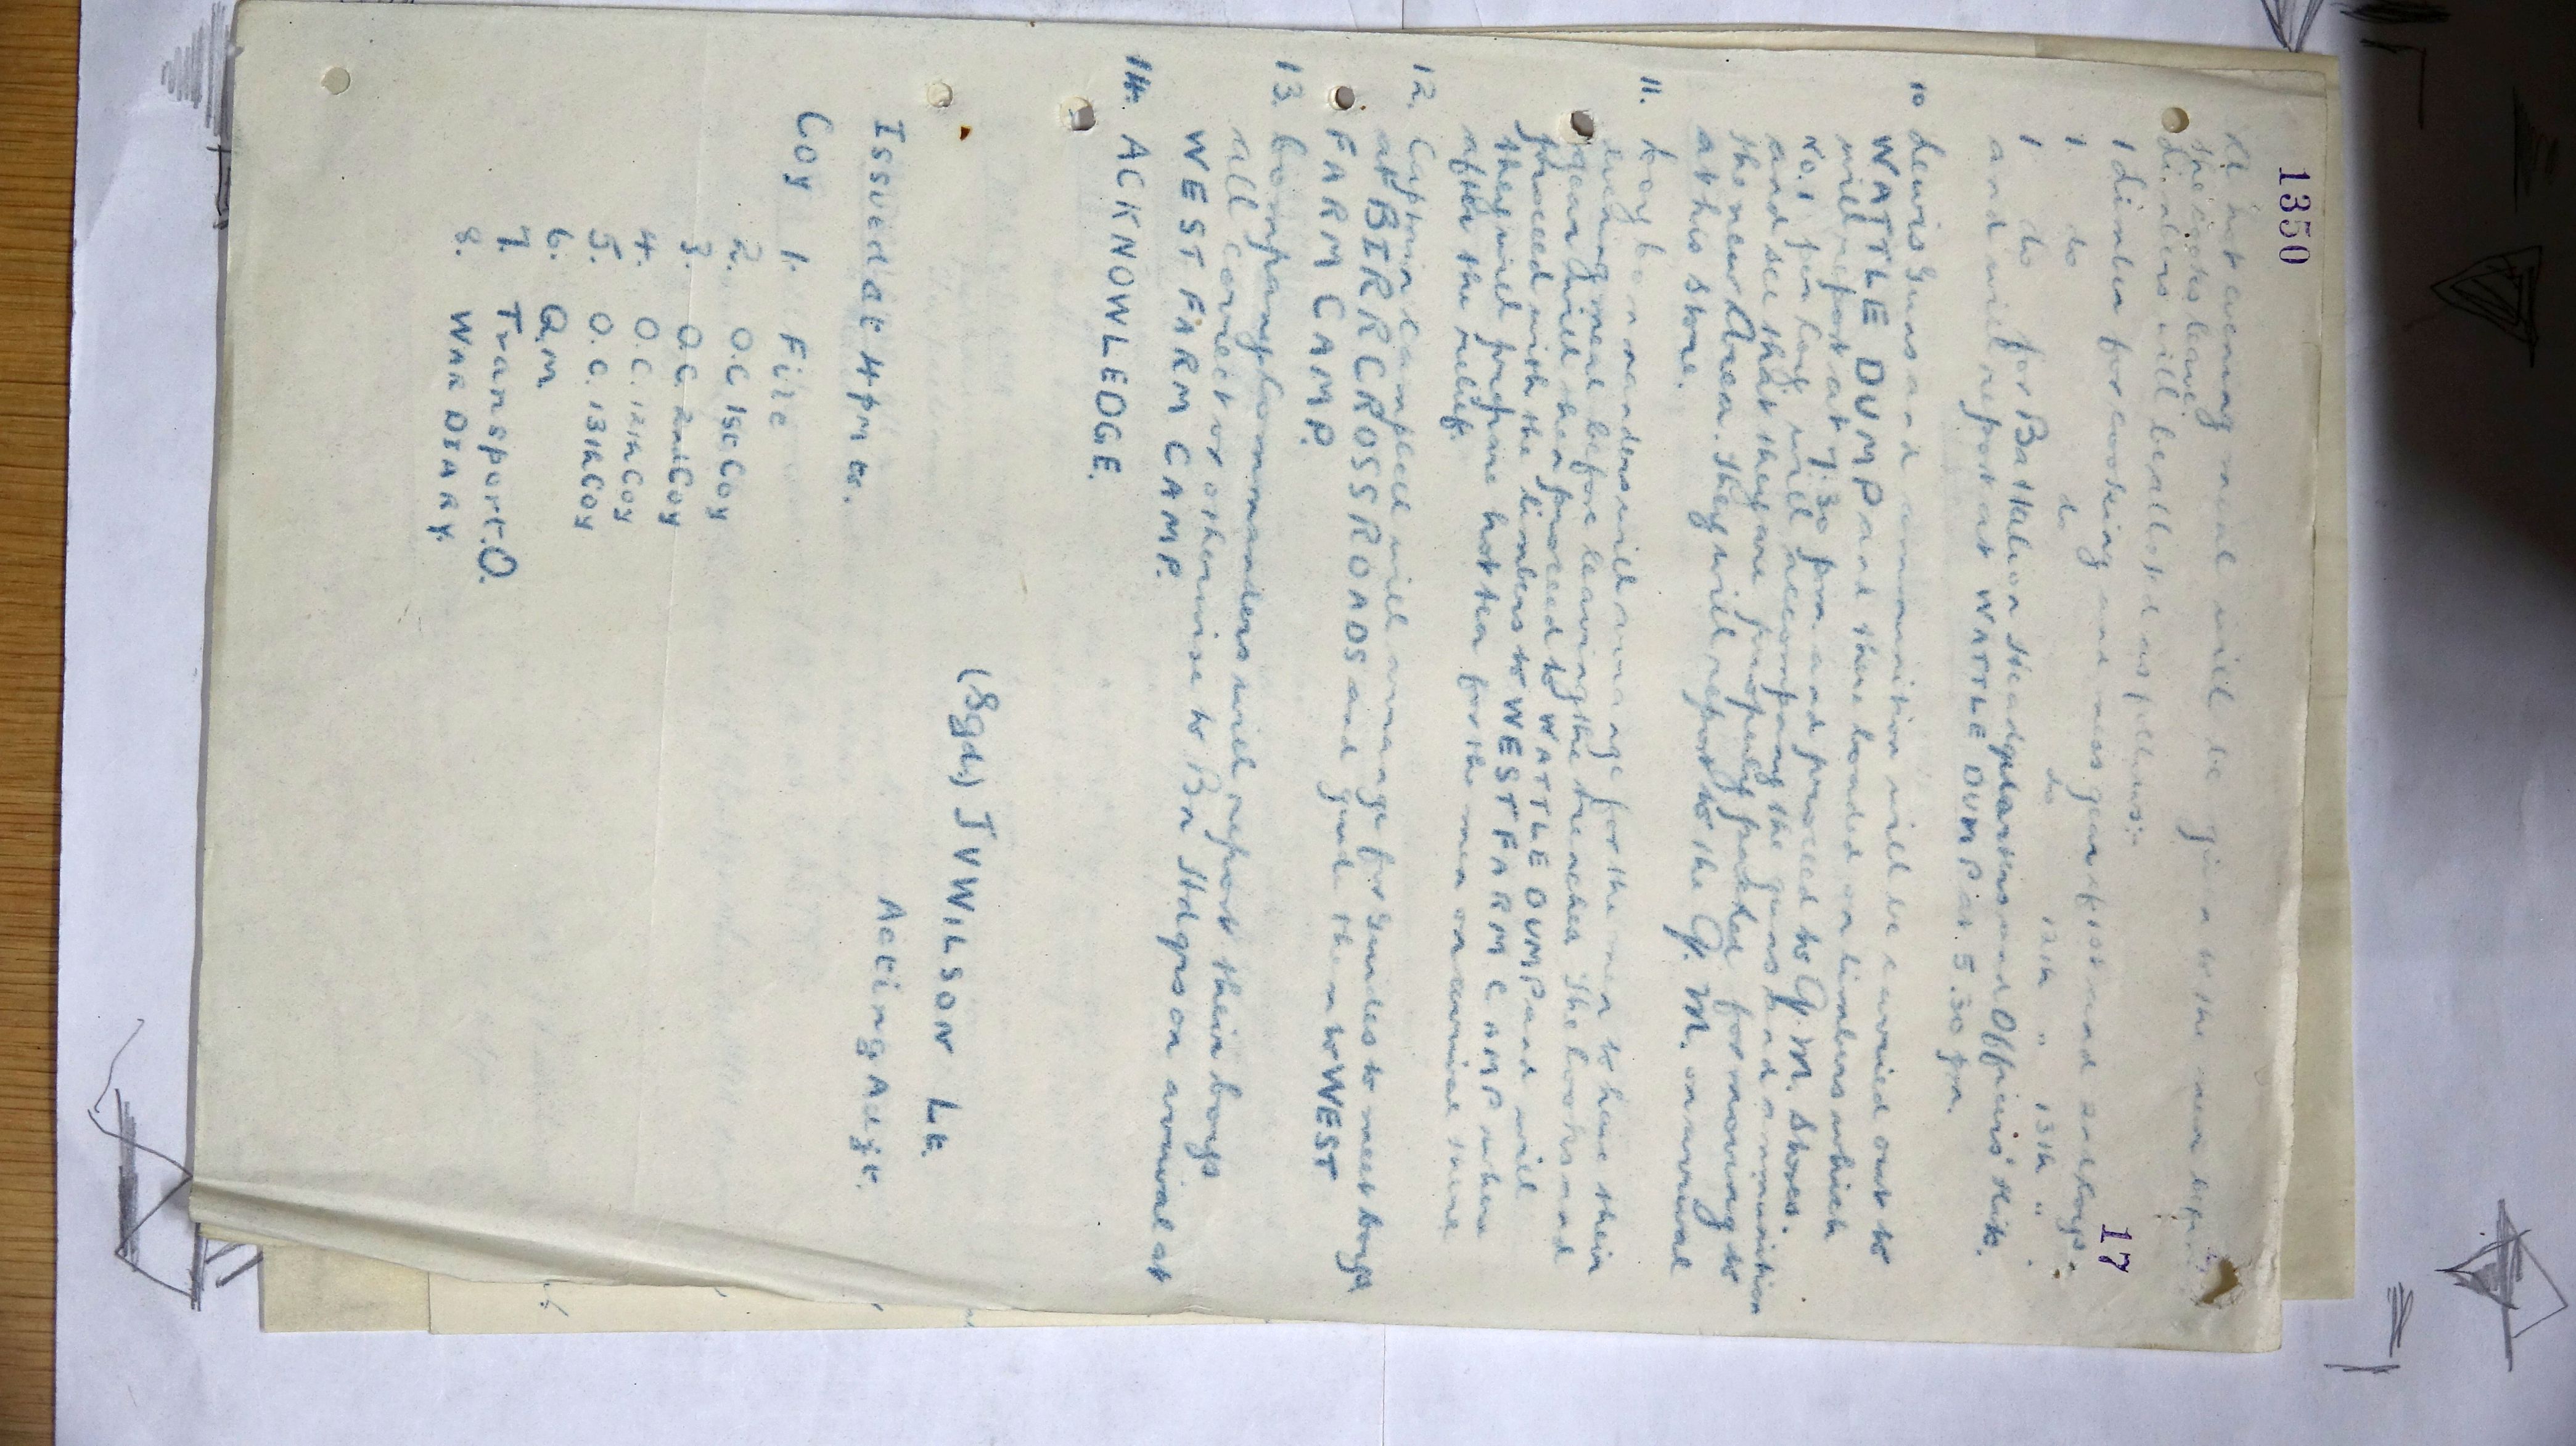 1350
17
A hot evening meal will be given to the men before
the cooks leave.
Limbers will be allotted as follows:-
1 limber for cooking and mess gear of 1st and 2nd Coys.
1. do do do 12th " 13th " .
1 do for Battalion Headquarters and Officers' Kits.
and will report at WATTLE DUMP at 5.30 pm.
10 Lewis Guns and ammunition will be carried out to
WATTLE DUMP and there loaded on limbers which
will report at 7.30 pm and proceed to Q.M. Stores.
No. 1 per Coy will accompany the guns and ammunition
and see that they are properly packed for moving to
the new Area. They will report to the Q.M. on arrival
at his Store.
11. Coy Commanders will arrange for the men to have their
evening meal before leaving the trenches. The Cooks and
gear will then proceed to WATTLE DUMP and will
proceed with the limbers to WEST FARM CAMP when
they will prepare hot tea for the men on arrival there
after the relief.
12. Captain Campbell will arrange for Guides to meet Coys
at BIRR CROSS ROADS and guide them to WEST
FARM CAMP.
13. Company Commanders will report their Coys
all correct or otherwise to Bn Hdqrs on arrival at
WEST FARM CAMP.
14. ACKNOWLEDGE.
(Sgd.) J V WILSON Lt.
Acting Adjt.
Issued at 4 pm to.
Coy 1. File
2. O.C 1st Coy
3. O.C. 2nd Coy
4. O.C. 12th Coy
5. O.C. 13th Coy
6. Q.M
7. Transport. O.
8. WAR DIARY.